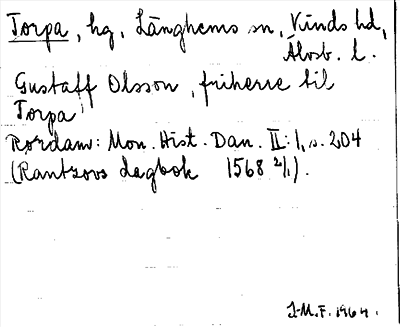 Torpa, hg, Länghems sn, Kinds hd,
Älvsb. l.
Gustaff Olsson, friherre til
Torpa
Rørdam: Mon. Hist. Dan. II:1, s. 204
(Rantzovs dagbok 1568 2/1).
J-M. F. 1964.